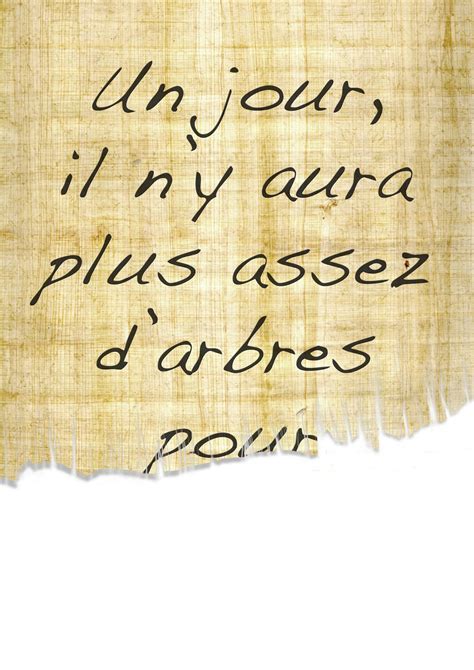 Un jour,
il n'y aura
plus assez
d'arbres
pour